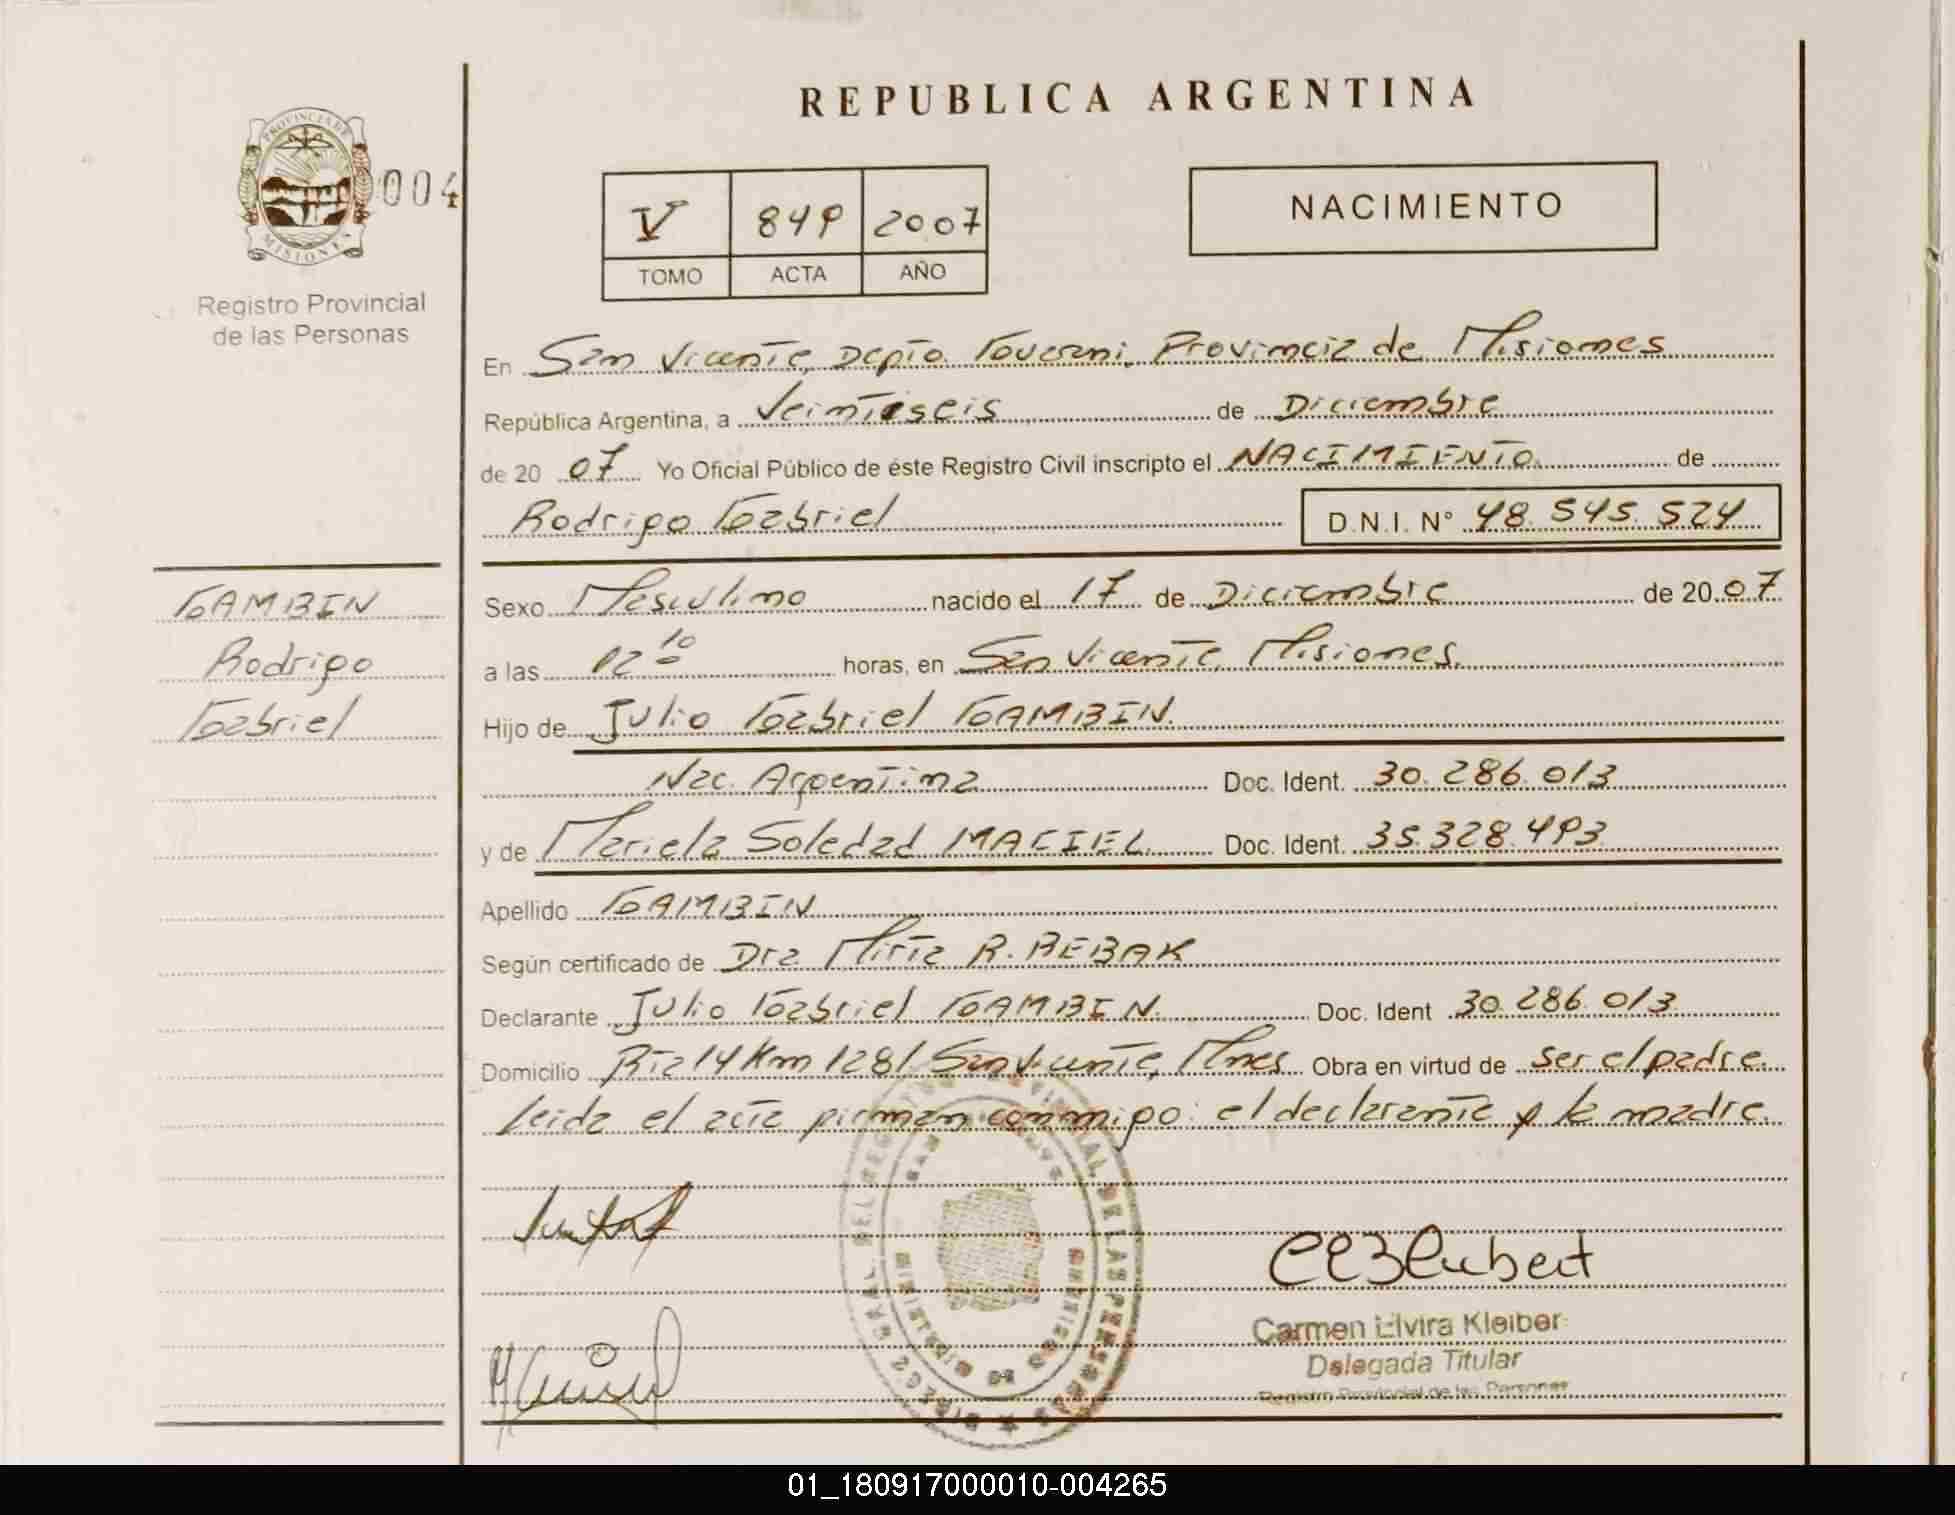 REPUBLICA ARGENTINA
PROVINCIA DE
MISIONES
004
Registro Provincial
de las Personas
V 849 2007
TOMO ACTA AÑO
NACIMIENTO
En San Vicente, Depto. Guaraní, Provincia de Misiones
República Argentina, a Veintiseis de Diciembre
de 20 07 Yo Oficial Público de éste Registro Civil inscripto el NACIMIENTO de
Rodrigo Gabriel D.N.I. Nº 48.545.524
GAMBIN
Rodrigo
Gabriel
Sexo Masculino nacido el 17 de Diciembre de 20 07
a las 02 10 horas, en San Vicente, Misiones.
Hijo de Julio Gabriel GAMBIN.
Nac. Argentina Doc. Ident. 30.286.013
y de Mariela Soledad MACIEL. Doc. Ident. 35.328.493
Apellido GAMBIN
Según certificado de Dra Mirta R. BEBAK
Declarante Julio Gabriel GAMBIN. Doc. Ident 30.286.013
Domicilio Rta 14 Km 1281 San Vicente, Mnes Obra en virtud de ser el padre.
leida el acta firman conmigo: el declarante y la madre.
SAN VICENTE
MINISTERIO DE GOBIERNO
Carmen Elvira Kleiber
Delegada Titular
Registro Provincial de las Personas
01_180917000010-004265